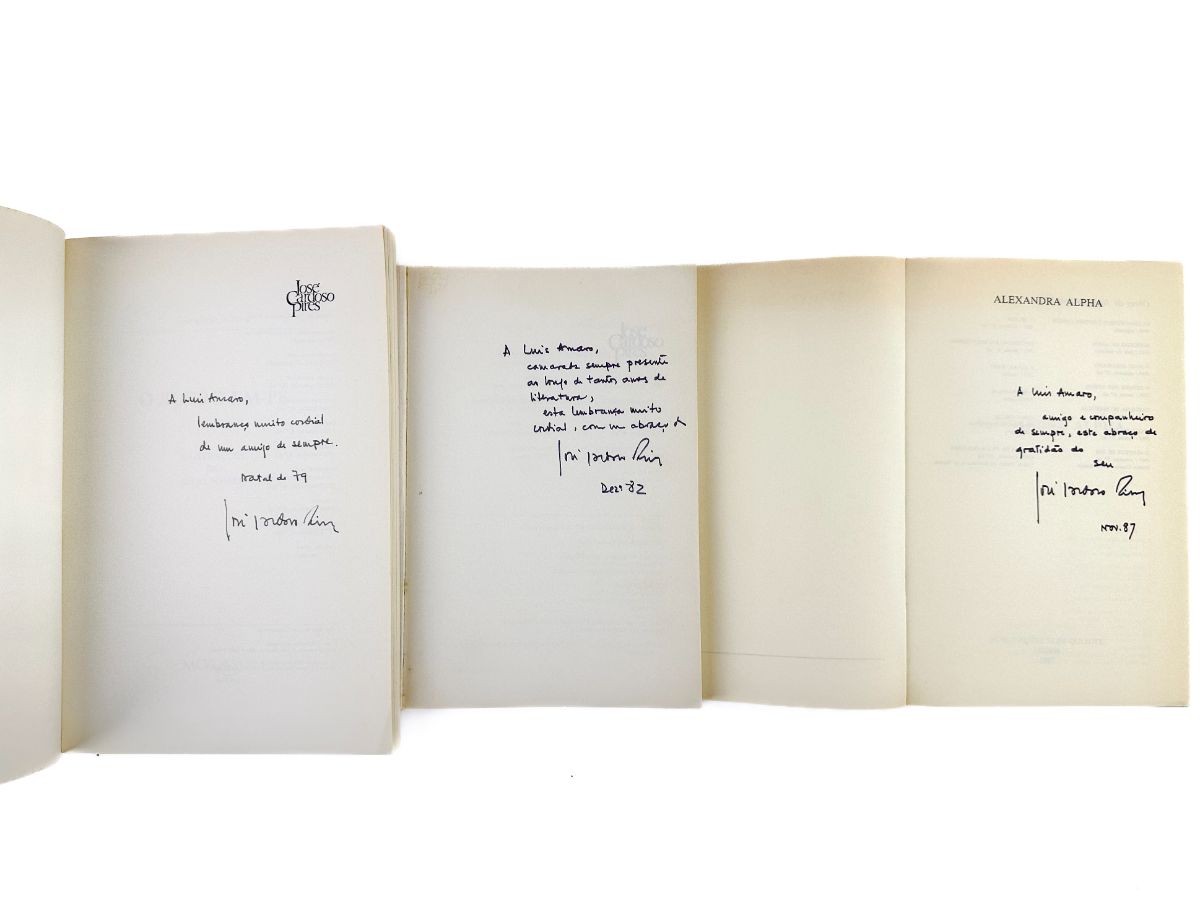 José
Cardoso
Pires
A Luis Amaro,
lembrança muito cordial
de um amigo de sempre.
Natal de 79
José Cardoso Pires
A Luis Amaro,
camarada sempre presente
ao longo de tantos anos de
literatura,
esta lembrança muito
cordial, com um abraço do
José Cardoso Pires
Dezº 82
ALEXANDRA ALPHA
A Luis Amaro,
amigo e companheiro
de sempre, este abraço de
gratidão do
seu
José Cardoso Pires
Nov. 87